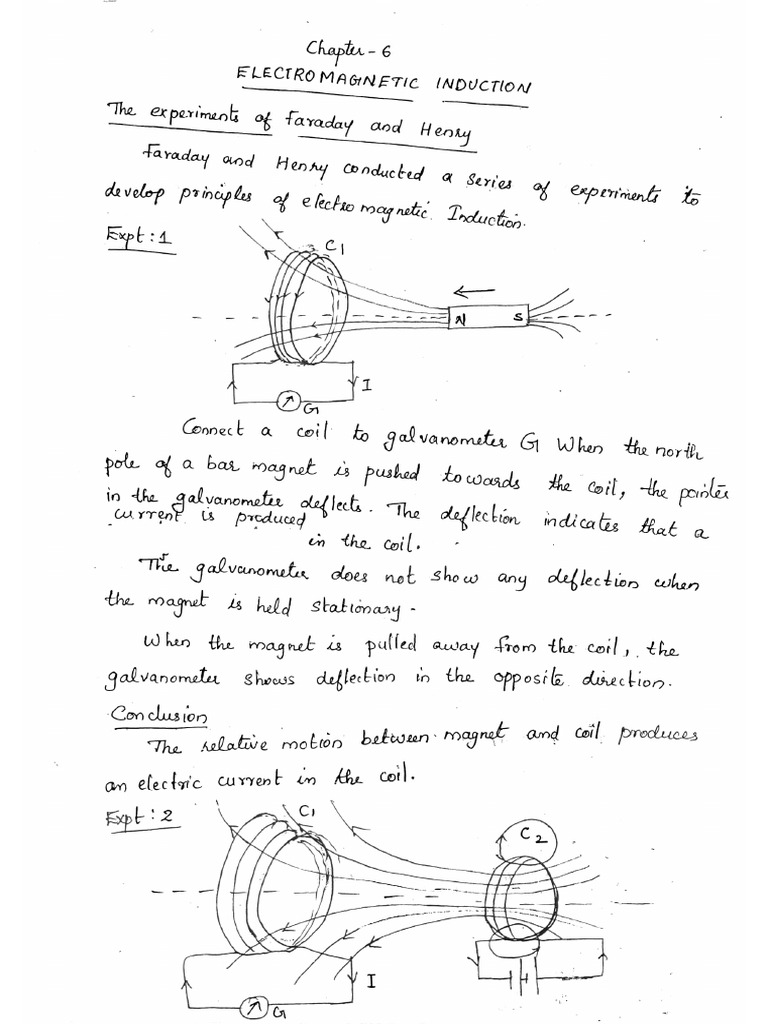 Chapter - 6
ELECTROMAGNETIC INDUCTION
The experiments of Faraday and Henry
Faraday and Henry conducted a series of experiments to
develop principles of electro magnetic Induction.
Expt : 1
C1
N S
I
G
Connect a coil to galvanometer G When the north
pole of a bar magnet is pushed towards the coil, the pointer
in the galvanometer deflects. The deflection indicates that a
current is produced
in the coil.
The galvanometer does not show any deflection when
the magnet is held stationary.
When the magnet is pulled away from the coil, the
galvanometer shows deflection in the opposite direction.
Conclusion
The relative motion between magnet and coil produces
an electric current in the coil.
Expt : 2
C1
C2
I
G